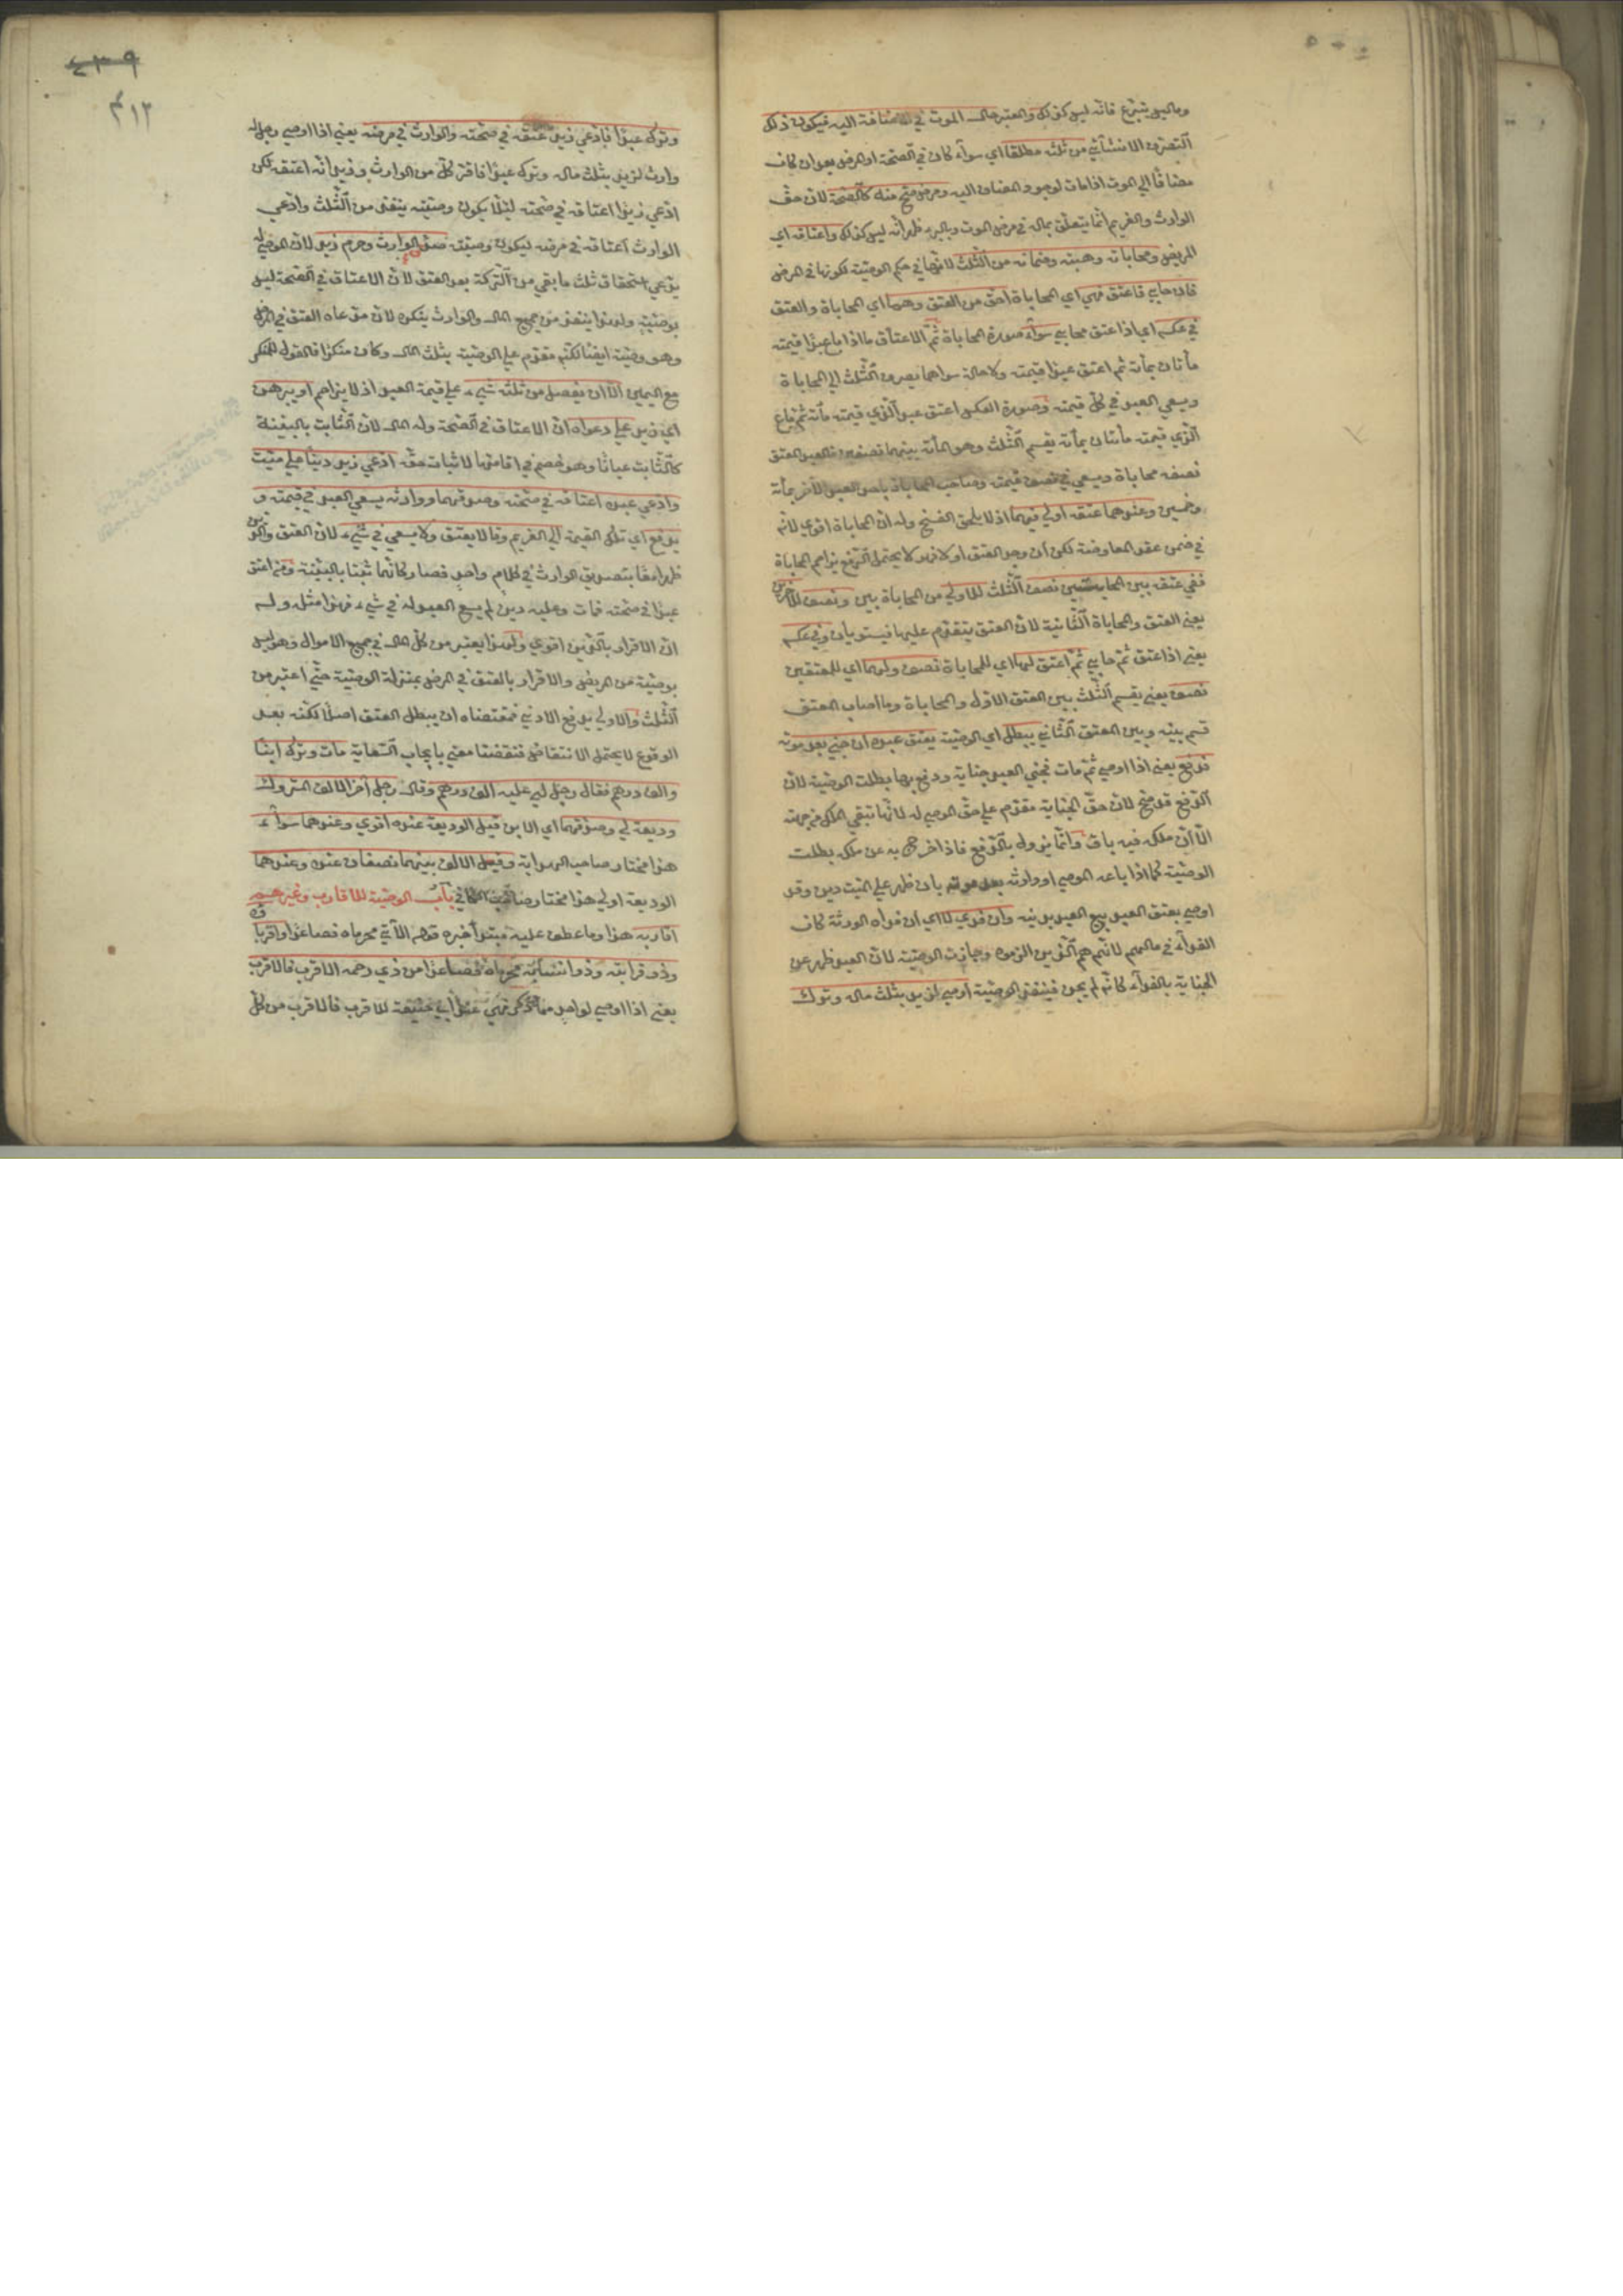 وما ليس بتبرع فانه ليس كذلك والمعتبر حال الموت في المضافة اليه فيكون ذلك
التصرف الانشائي من ثلثه مطلقا اي سواء كان في الصحة او المرض بعد ان كان
مضافا الي الموت اذا مات لوجود المضاف اليه ومرض صح منه كالصحة لان حق
الوارث والغريم انما يتعلق بماله في مرض الموت وبالبرء ظهر انه ليس كذلك واعتاقه اي
المريض ومحاباته وهبته وضمانه من الثلث لانها في حكم الوصية لكونها في المرض
فان حابي فاعتق فهي اي المحاباة احق من العتق وهما اي المحاباة والعتق
في عكسه اي اذا اعتق فحابي سواء صورة المحاباة ثم الاعتاق ما اذا باع عبدا قيمته
مأتان بمأة ثم اعتق عبدا قيمته ولا مال سواهما يصرف الثلث الي المحاباة
ويسعي العبد في كل قيمته وصورة العكس اعتق عبدا الذي قيمته مأة ثم باع
الذي قيمته مأتان بمأة يقسم الثلث وهو المأة بينهما نصفين فالعبد المعتق
نصفه مجانا ويسعي في نصف قيمته وصاحب المحاباة ياخذ العبد الآخر بمأة
وخمسين وعندهما عتقه اولي فيهما اذ لا يلحقه الفسخ وله ان المحاباة اقوي لانه
في ضمن عقد المعاوضة لكن ان وجد العتق اولا فهو لا يحتمل الدفع يزاحم المحاباة
ففي عتقه بين المحاباتين نصف الثلث للاولي من المحاباة بين ونصف للآخرين
يعني العتق والمحاباة الثانية لان العتق يتقدم عليها فيستويان وفي عكسه
يعني اذا اعتق ثم حابي ثم اعتق لها اي للمحاباة نصف ولهما اي للمعتقين
نصف يعني يقسم الثلث بين العتق الاول والمحاباة وما اصاب العتق
قسم بينه وبين العتق الثاني يبطل اي الوصية بعتق عبده ان جني بعد موته
فدفع يعني اذا اوصي ثم مات فجني العبد جناية ودفع بها بطلت الوصية لان
الدفع قد صح لان حق الجناية مقدم علي حق الموصي له لانها تبقي الملك من جهته
الا ان ملكه فيه باق وانما يزول بالدفع فاذا اخرج به عن ملكه بطلت
الوصية كما اذا باعه الموصي او وارثه بعد موته بان ظهر علي الميت دين وقد
اوصي بعتق العبد بيع العبد بدينه وان فدي لا اي ان فداه الورثة كان
الفداء في مالهم لانهم هم الذين التزموه وجازت الوصية لان العبد ظهر عن
الجناية بالفداء كانه لم يجن فينفذ الوصية اوصي لزيد بثلث ماله وترك
٤٣٩
٤١٢
وترك عبدا فادعي زيد عتقه في صحته والوارث في مرضه يعني اذا اوصي رجل له
وارث لزيد بثلث ماله وترك عبدا فاقر كل من الوارث وزيد انه اعتقه لكن
ادعي زيد اعتاقه في صحته لئلا يكون وصيته ينفذ من الثلث وادعي
الوارث اعتاقه في مرضه ليكون وصيته صدق الوارث وحرم زيد لان الموصي له
يدعي استحقاق ثلث ما بقي من التركة بعد العتق لان الاعتاق في الصحة ليس
بوصية ولهذا ينفذ من جميع المال والوارث ينكره لان مدعاه العتق في المرض
وهو وصية ايضا لكنه مقدم علي الوصية بثلث المال وكان منكرا فالقول للمنكر
مع اليمين الا ان يفضل من ثلثه شيء علي قيمة العبد اذ لا يزاحم او يبرهن
اي زيد علي دعواه ان الاعتاق في الصحة وله المال لان الثابت بالبينة
كالثابت عيانا وهو خصم في اقامتها لاثبات حقه ادعي زيد دينا علي ميت
وادعي عبده اعتاقه في صحته وصدقهما وارثه يسعي العبد في قيمته و
يدفع اي تلك القيمة الي الغريم وقالا يعتق ولا يسعي في شيء لان العتق والدين
ظهرا معا بتصديق الوارث في كلام واحد فصار كانهما ثبتا بالبينة ومن اعتق
عبدا في صحته فمات وعليه دين لم يسع العبد له في شيء فهذا مثله وله
ان الاقرار بالدين اقوي ولهذا يعتبر من كل المال في جميع الاموال وهو ليس
بوصية من المريض والاقرار بالعتق في المرض بمنزلة الوصية حتي اعتبر من
الثلث والاولي يدفع الادني فمقتضاه ان يبطل العتق اصلا لكنه بعد
الوقوع لا يحتمل الانتقاض فنقضناه معني بايجاب السعاية مات وترك ابنا
والف درهم فقال رجل لي عليه الف درهم وقال رجل آخر الالف المتروك
وديعة لي وصدقهما اي الابن قيل الوديعة عنده اقوي وعندهما سواء
هذا مختار صاحب الهداية وقيل الالف بينهما نصفان عنده وعندهما
الوديعة اولي هذا مختار صاحب الكافي باب الوصية للاقارب وغيرهم
اقاربه هذا وما عطف عليه مبتدأ خبره قوله الآتي محرماه فصاعدا واقرباؤه
وذو قرابته وذو انسابه محرماه فصاعدا من ذي رحمه الاقرب فالاقرب
يعني اذا اوصي لواحد مما ذكر فهي عند ابي حنيفة للاقرب فالاقرب من كل